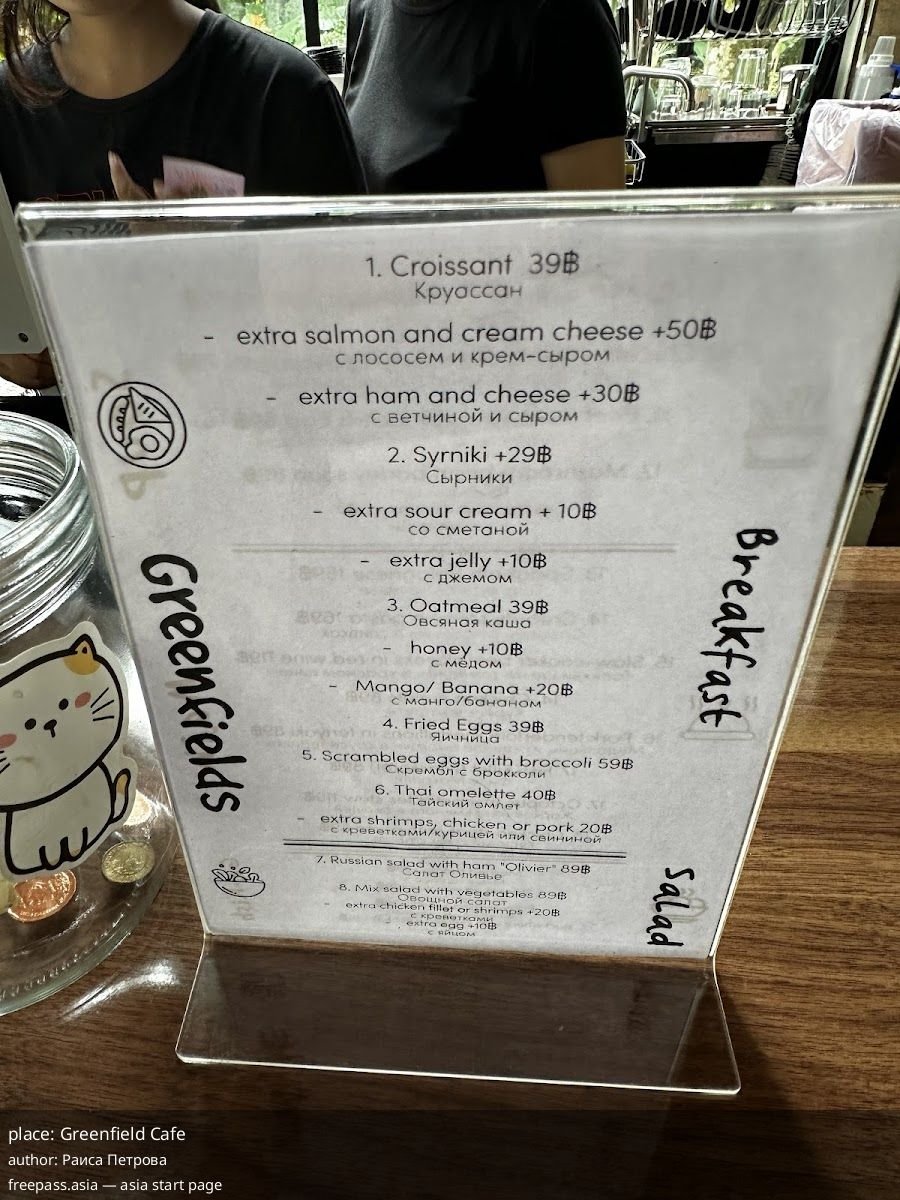 1. Croissant 39฿
Круассан
- extra salmon and cream cheese +50฿
с лососем и крем-сыром
- extra ham and cheese +30฿
с ветчиной и сыром
2. Syrniki +29฿
Сырники
- extra sour cream + 10฿
со сметаной
- extra jelly +10฿
с джемом
3. Oatmeal 39฿
Овсяная каша
- honey +10฿
с мёдом
- Mango/ Banana +20฿
с манго/бананом
4. Fried Eggs 39฿
Яичница
5. Scrambled eggs with broccoli 59฿
Скрембл с брокколи
6. Thai omelette 40฿
Тайский омлет
- extra shrimps, chicken or pork 20฿
с креветками/курицей или свининой
7. Russian salad with ham "Olivier" 89฿
Салат Оливье
8. Mix salad with vegetables 89฿
Овощной салат
- extra chicken fillet or shrimps +20฿
с креветками
- extra egg +10฿
с яйцом
Greenfields
Breakfast
Salad
place: Greenfield Cafe
author: Раиса Петрова
freepass.asia — asia start page